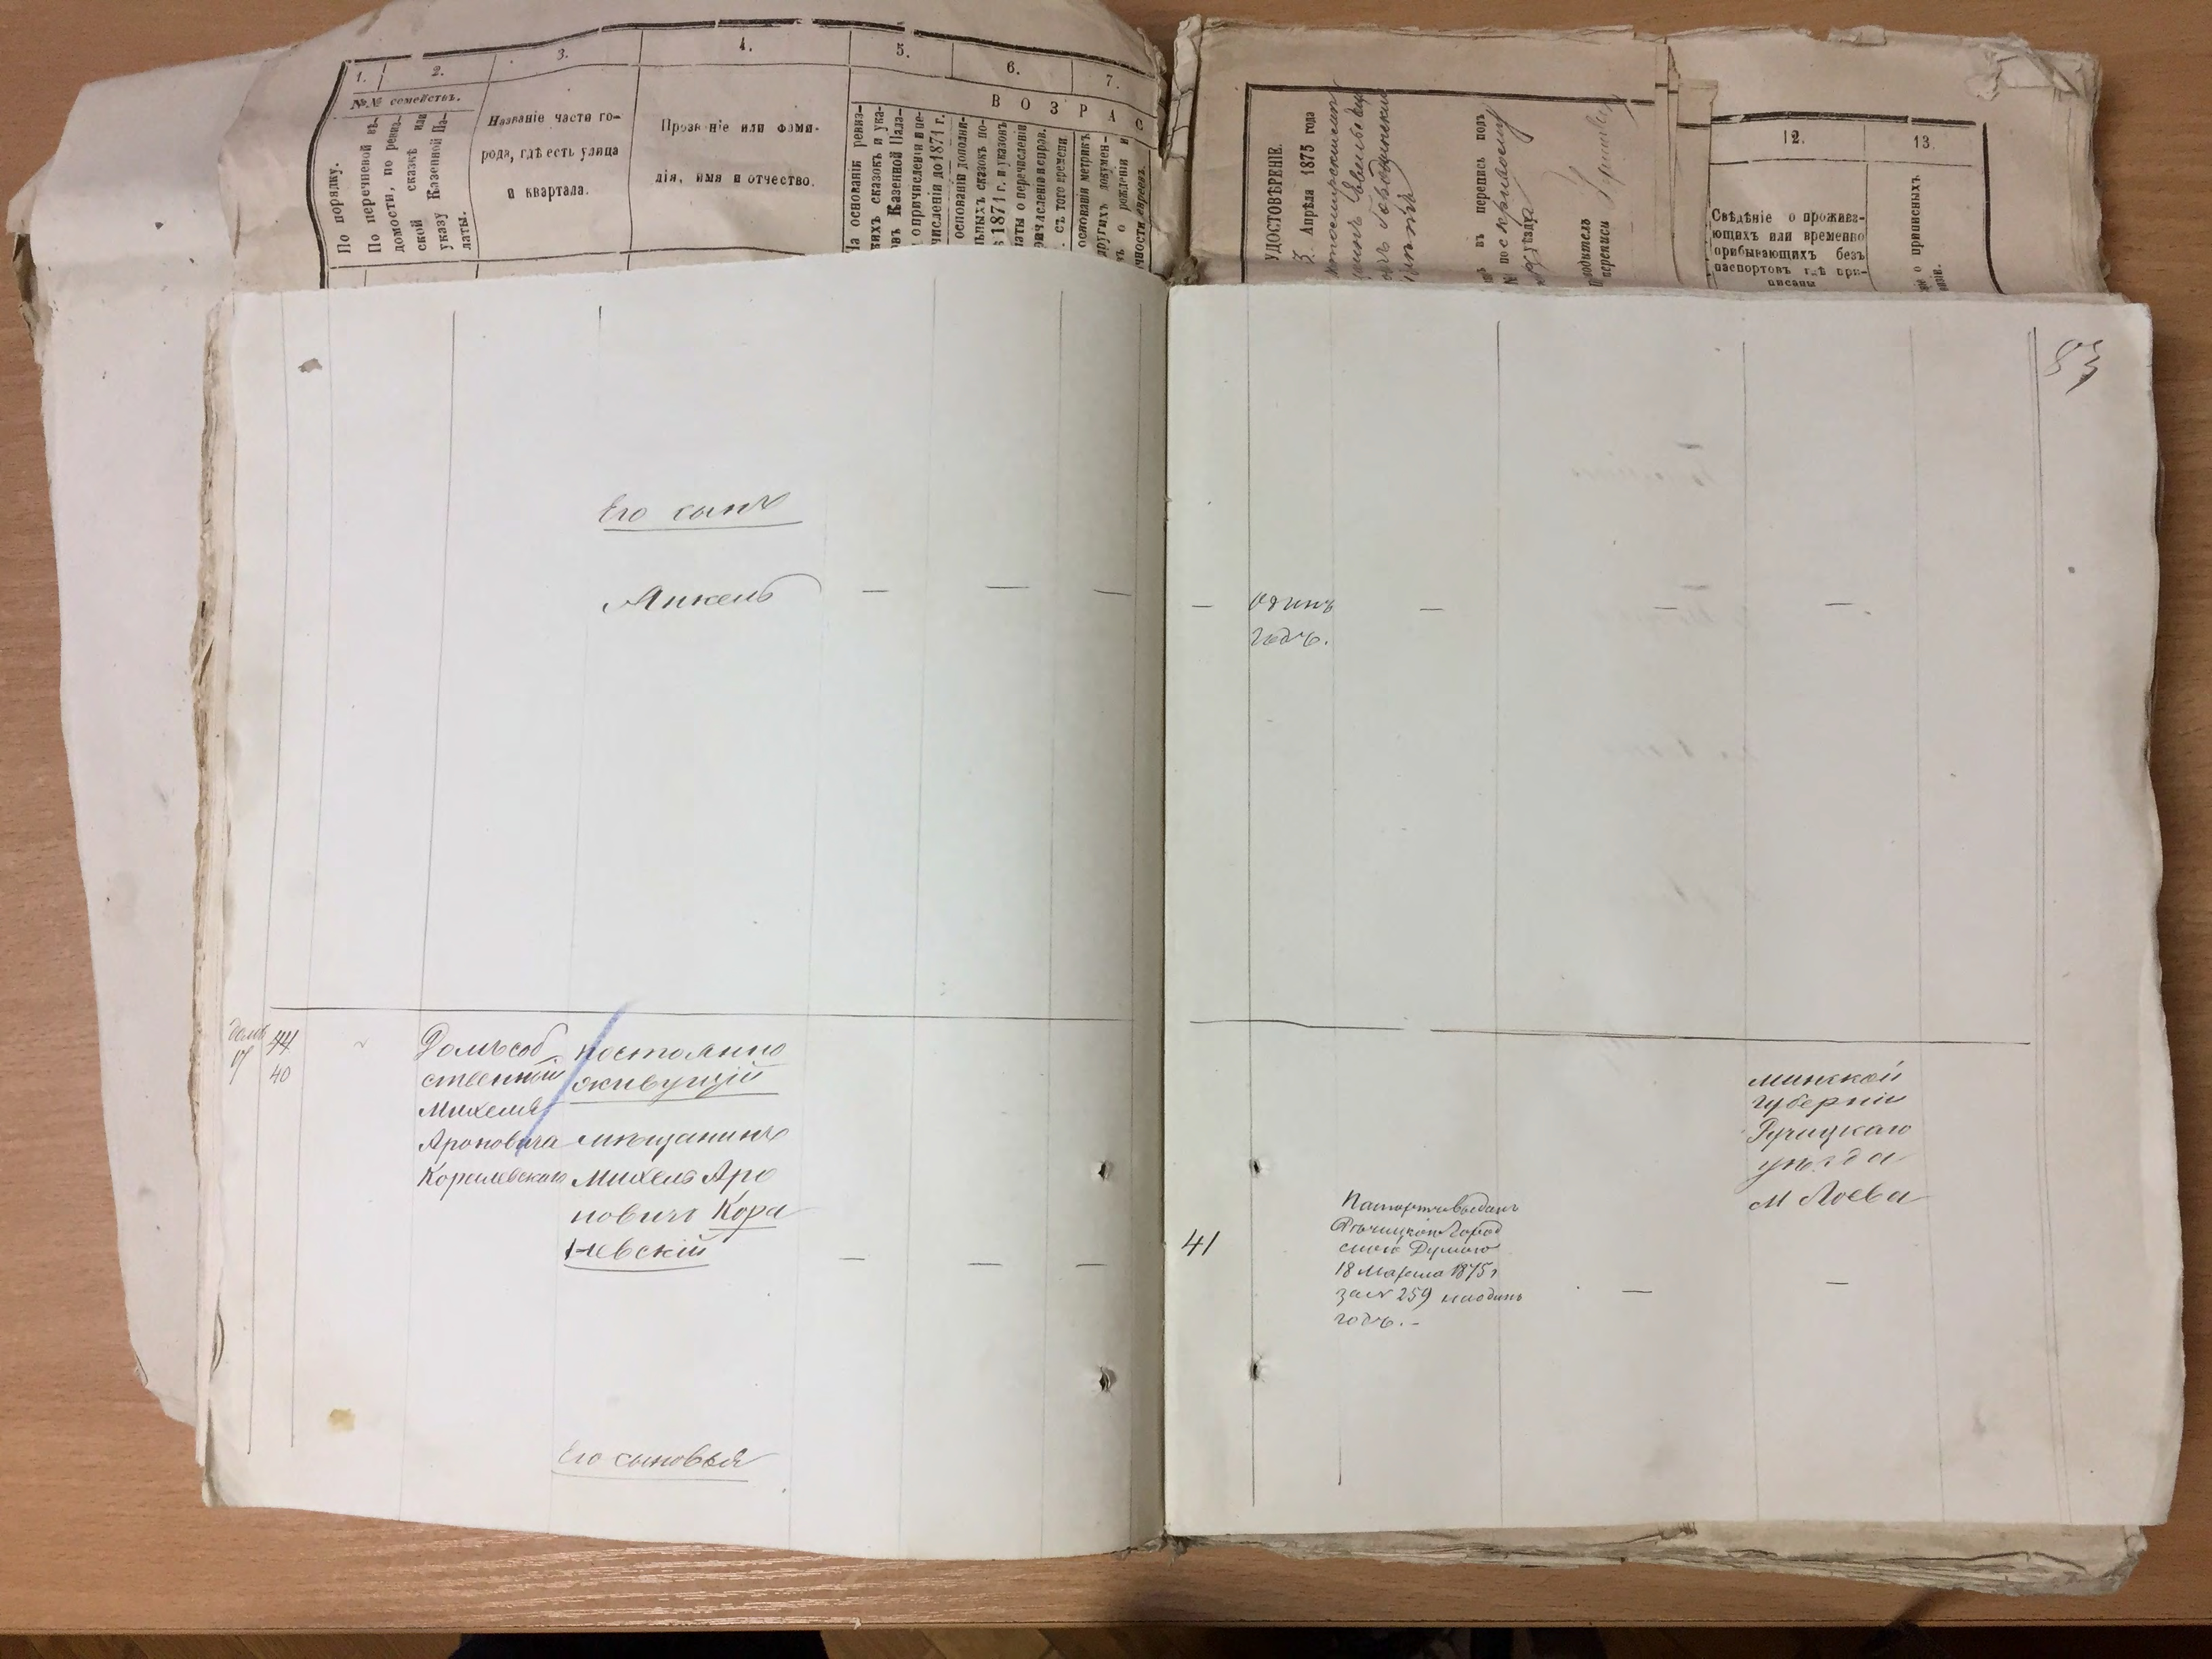 1.
2.
3.
4.
5.
6.
7.
№№ семействъ.
По порядку.
По перечневой вѣ-
домости, по ревиз-
ской сказкѣ или
указу Казенной Па-
латы.
Названіе части го-
рода, гдѣ есть улица
и квартала.
Прозваніе или фами-
лія, имя и отчество.
ВОЗРАС
На основаніи ревиз-
скихъ сказокъ и ука-
Казенной Пала-
о причисленіи и пе-
численіи до 1871 г.
основаніи дополни-
льныхъ сказокъ по-
1871 г. и указовъ
латы о перечисленіи
съ того времени
основаніи метрикъ
другихъ докумен-
о рожденіи и
чности евреевъ.
УДОСТОВѢРЕНІЕ.
3 Апрѣля 1875 года
въ перепись подъ
№
уѣзда
переписи
12.
13.
Свѣдѣніе о прожива-
ющихъ или временно
прибывающихъ безъ
паспортовъ гдѣ при-
писаны
о приписныхъ
83
Его сынъ
Янкель — — —
— одинъ — — —
годъ.
домъ 44
40
Домъ соб
ственный
Михеля
Ароновича
Коралевскаго
постоянно
живущій
мѣщанинъ
Михель Аро
новичъ Кора
левскій — — —
Его сыновья
41
Паспортъ выданъ
Рѣчицкою Город
скою Думою
18 Марта 1875 г
за № 259 на одинъ
годъ. —
— —
Минской
губерніи
Рѣчицкаго
уѣзда
м Лоева